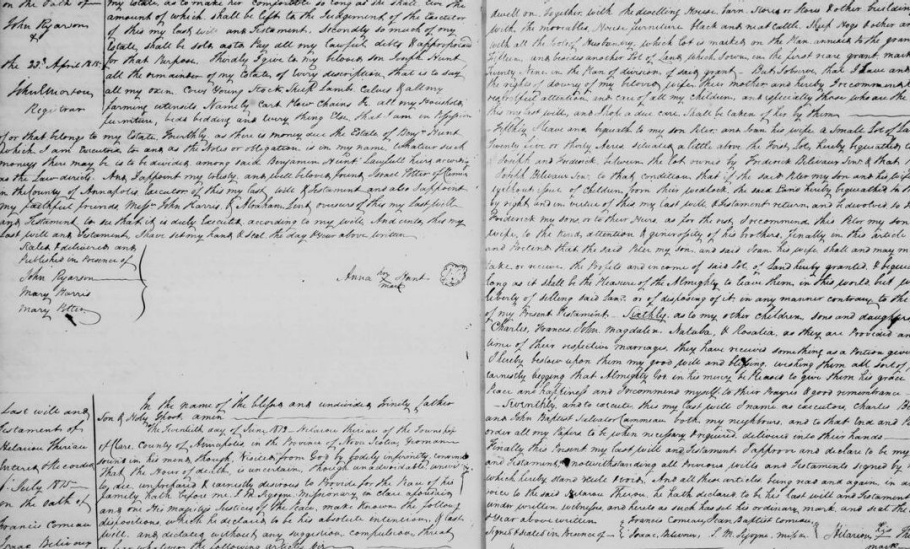 on the oath of
John Ryarson
&
the 22d. April 1815
John Morton,
Registrar
my Estate, as to make her comfortable so long as she shall live the
amount of which, shall be left to the Judgement of the Executor
of this my last will and Testament. Secondly so much of my
Estate, shall be sold as to Pay all my lawful debts & appropriated
for that Purpose. Thirdly I give to my beloved son Joseph Hunt,
all the remainder of my Estate, of every discription, that is to say
all my oxen, Cows Young Stock, Sheep, Lambs, Calves & all my
farming utensils Namely Cart Plow Chains & all my Household
furniture, beds bedding and every thing Else, that I am in Possession
of or that belongs to my Estate, Fourthly as there is money due the Estate of Benj. Hunt
which I am Executrix to, and as the Notes or obligation, is in my name, whatever such
moneys there may be is to be divided among said Benjamin Hunt Lawfull heirs according
as the Law directs. And I appoint my trusty, and well beloved friend Israel Potter of Clements
in the County of Annapolis, Executor of this my last will & Testament and also I appoint
my faithful friends, Messrs John Harris, & Abraham Lent, oversees of this my last will
and Testament, to see that it is duly Executed, according to my will. And unto this my
Last will and Testament, I have set my hand & seal the day & year above written
Sealed & delivered and
Published in Presence of
John Ryarson
Mary Harris
Mary Potter
Anna her Hunt
mark
Last will and
Testament of
Hilarion Theriau
Entered & recorded
1 July 1815
on the oath of
Francis Comeau
Isaac Beliveau
In the name of the blessed and undivided Trinity, father
Son & Holy Ghost amen
The Twentieth day of June, 1813 Hilarion Theriau of the Township
of Clare, County of Annapolis, in the Province of Nova Scotia, Yeoman
sound in his mind, though Visited from God by bodily infirmity,
that the Hour of death, is uncertain, though unavoidable
to die unprepared & earnestly desirous to Provide for the Peace of his
family hath before me J. M. Sigogne Missionary in Clare aforesaid
and one His majestys Justices of the Peace, made Known the following
dispositions which he declared to be his absolute intention, & last
will, and declared without any suggestion compulsion, threat
or
dwell on, Together with the dwelling House, Barn Store or Stores & other building
with the movables, House furniture black and neat cattle, Sheep Hogs & other
with all the tools of Husbandry, which Lot is marked on the Plan annexed to the grant
and besides another Lot of Land, which I own, in the first rear grant, marked
Twenty Nine in the Plan of division of said grant. But I observe, that I leave and
the rights of dowry of my beloved wife, their mother and hereby I recommend
respectful attention, and care of all my children, and especially those who are the
this my last will, and I hope a due care, shall be taken of her by them
Fifthly I leave and bequeath to my son Peter, and Joan his wife, a Small Lot of La
Twenty Five or thirty Acres situated, a little above the Forest Lot, hereby bequeathed to
Joseph and Frederick, between the Lot owned by Frederick Beliveau Senr & that
Joseph Beliveau Senr to that condition, that if the said Peter my son and his wife
without issue of Children, from this wedlock, the said Land hereby bequeathed to
by right, and in virtue of this my last will, & Testament return, and is devolved to
Frederick my sons or to their Heirs, as for the rest, I recommend this Peter my son
wife, to the Kind, attention & generosity, of his brothers, Finally in this article
and Pretend that the said Peter my son, and said Joan his wife, shall and may
take or receive the Profits and income of said Lot of Land hereby granted, & bequea
long as it shall be the Pleasure of the Almighty to leave them, in this world, but
liberty of selling said Land, or of disposing of it, in any manner contrary to the
of my Present Testament. Sixthly, as to my other children, sons and daughters
Charles, Francis, John, Magdalen, & Rosalia, as they are Provided an
time of their respective marriages, they have received something as a Portion given
I hereby bestow upon them my good will and blessing, wishing them all sort of
earnestly begging that Almighty God, in his mercy be Pleased to give them his grace
Peace and happiness and I recommend myself to their Prayers & good remembrance
Seventhly, and to execute this my last will I name as executors, Charles B
and John Baptist Salvator Commeau both, my neighbours, and to that end and P
order all my Papers to be, when necessary & required, delivered into their hands
Finally this Present my last will and Testament I approve and declare to be my
and Testament, notwithstanding all Previous wills and Testaments signed by
which hereby stand Void. And all these articles being read and again, in a
voice to the said Hilarion Theriau, he hath declared to be his last will and Testament
under written witnesses, and hereto as such has set his ordinary mark, and seal the
& year above written
Signed & sealed in Presence of
Francis Comeau, Jean Baptist Comeau,
Isaac Beliveau, J. M. Sigogne, miss.
Hilarion his The
mark